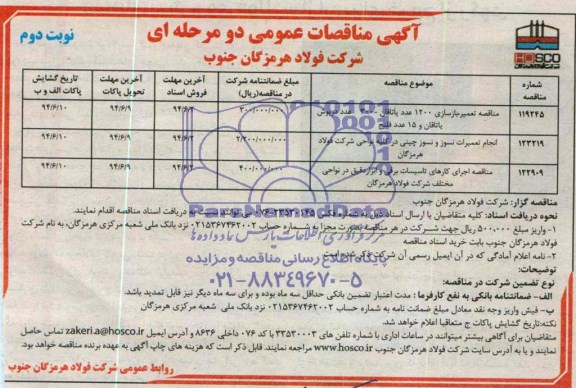 آگهی مناقصات عمومی دو مرحله ای
نوبت دوم
شرکت فولاد هرمزگان جنوب
HOSCO
شماره مناقصه
موضوع مناقصه
مبلغ ضمانتنامه شرکت در مناقصه(ریال)
آخرین مهلت فروش اسناد
آخرین مهلت تحویل پاکات
تاریخ گشایش پاکات الف و ب
۱۱۹۲۴۵ مناقصه تعمیربازسازی ۱۲۰۰ عدد یاتاقان ۳۰۰ عدد درپوش یاتاقان و ۱۵ عدد فلنج ۳۰۰/۰۰۰/۰۰۰ ۹۴/۶/۲ ۹۴/۶/۹ ۹۴/۶/۱۰
۱۲۳۲۱۹ انجام تعمیرات نسوز و نسوز چینی در کلیه نواحی شرکت فولاد هرمزگان ۲/۲۰۰/۰۰۰/۰۰۰ ۹۴/۶/۲ ۹۴/۶/۹ ۹۴/۶/۱۰
۱۲۲۹۰۹ مناقصه اجرای کارهای تاسیسات برقی و ابزار دقیق در نواحی مختلف شرکت فولاد هرمزگان ۴۰۰/۰۰۰/۰۰۰ ۹۴/۶/۲ ۹۴/۶/۹ ۹۴/۶/۱۰
مناقصه گزار: شرکت فولاد هرمزگان جنوب
نحوه دریافت اسناد: کلیه متقاضیان با ارسال اسناد ذیل به شماره فکس ۳۳۵۳۰۱۴۵-۰۷۶ می توانند نسبت به دریافت اسناد مناقصه اقدام نمایند.
۱-واریز مبلغ ۵۰۰/۰۰۰ ریال جهت شرکت در هر مناقصه بصورت مجزا به شماره حساب ۰۲۱۵۳۶۷۴۶۲۰۰۲ نزد بانک ملی شعبه مرکزی هرمزگان، به نام شرکت
فولاد هرمزگان جنوب بابت خرید اسناد مناقصه
۲- نامه اعلام آمادگی که در آن ایمیل رسمی آن شرکت ذکر شده است
توضیحات:
نوع تضمین شرکت در مناقصه:
الف - ضمانتنامه بانکی به نفع کارفرما : مدت اعتبار تضمین بانکی حداقل سه ماه بوده و برای سه ماه دیگر نیز قابل تمدید باشد.
ب- فیش واریز وجه نقد معادل مبلغ ضمانت نامه به شماره حساب ۰۲۱۵۳۶۷۴۶۲۰۰۲ نزد بانک ملی شعبه مرکزی هرمزگان
نکته:تاریخ گشایش پاکات ج متعاقبا اعلام خواهد شد.
متقاضیان برای آگاهی بیشتر میتوانند در ساعات اداری با شماره تلفن های ۳۳۵۳۰۰۰۳ با کد ۰۷۶ داخلی ۸۶۳۶ و آدرس ایمیل zakeri.a@hosco.ir تماس حاصل
نمایند و یا به آدرس سایت شرکت فولاد هرمزگان جنوب www.hosco.ir مراجعه نمایند. قابل ذکر است که هزینه های چاپ آگهی به عهده برنده مناقصه خواهد بود.
روابط عمومی شرکت فولاد هرمزگان جنوب
پایگاه اطلاع رسانی مناقصه و مزایده
۰۲۱-۸۸۳۴۹۶۷۰-۵